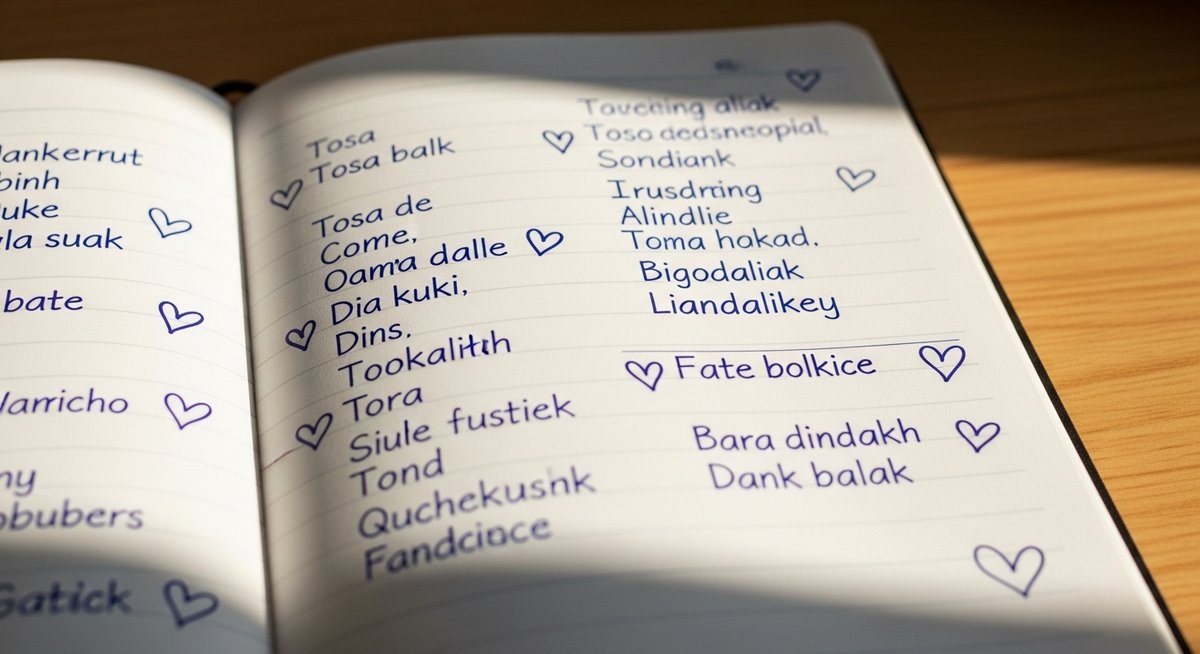 ankerrut
binh
uke
la suak
bate
arricho
ny
bubers
Gatick
Tosa
Tosa balk
Tosa de
Come,
Oama dalle
Dia kuki,
Dins.
Tookalitch
Tora
Siule fustiek
Tond
Quchekushk
Fandcioce
Tavching allak
Toso dedsneopial.
Sondiank
Irusdrring
Alindlie
Toma hakad.
Bigodaliak
Liandalikey
Fate bolkice
Bara dindakh
Dank balak